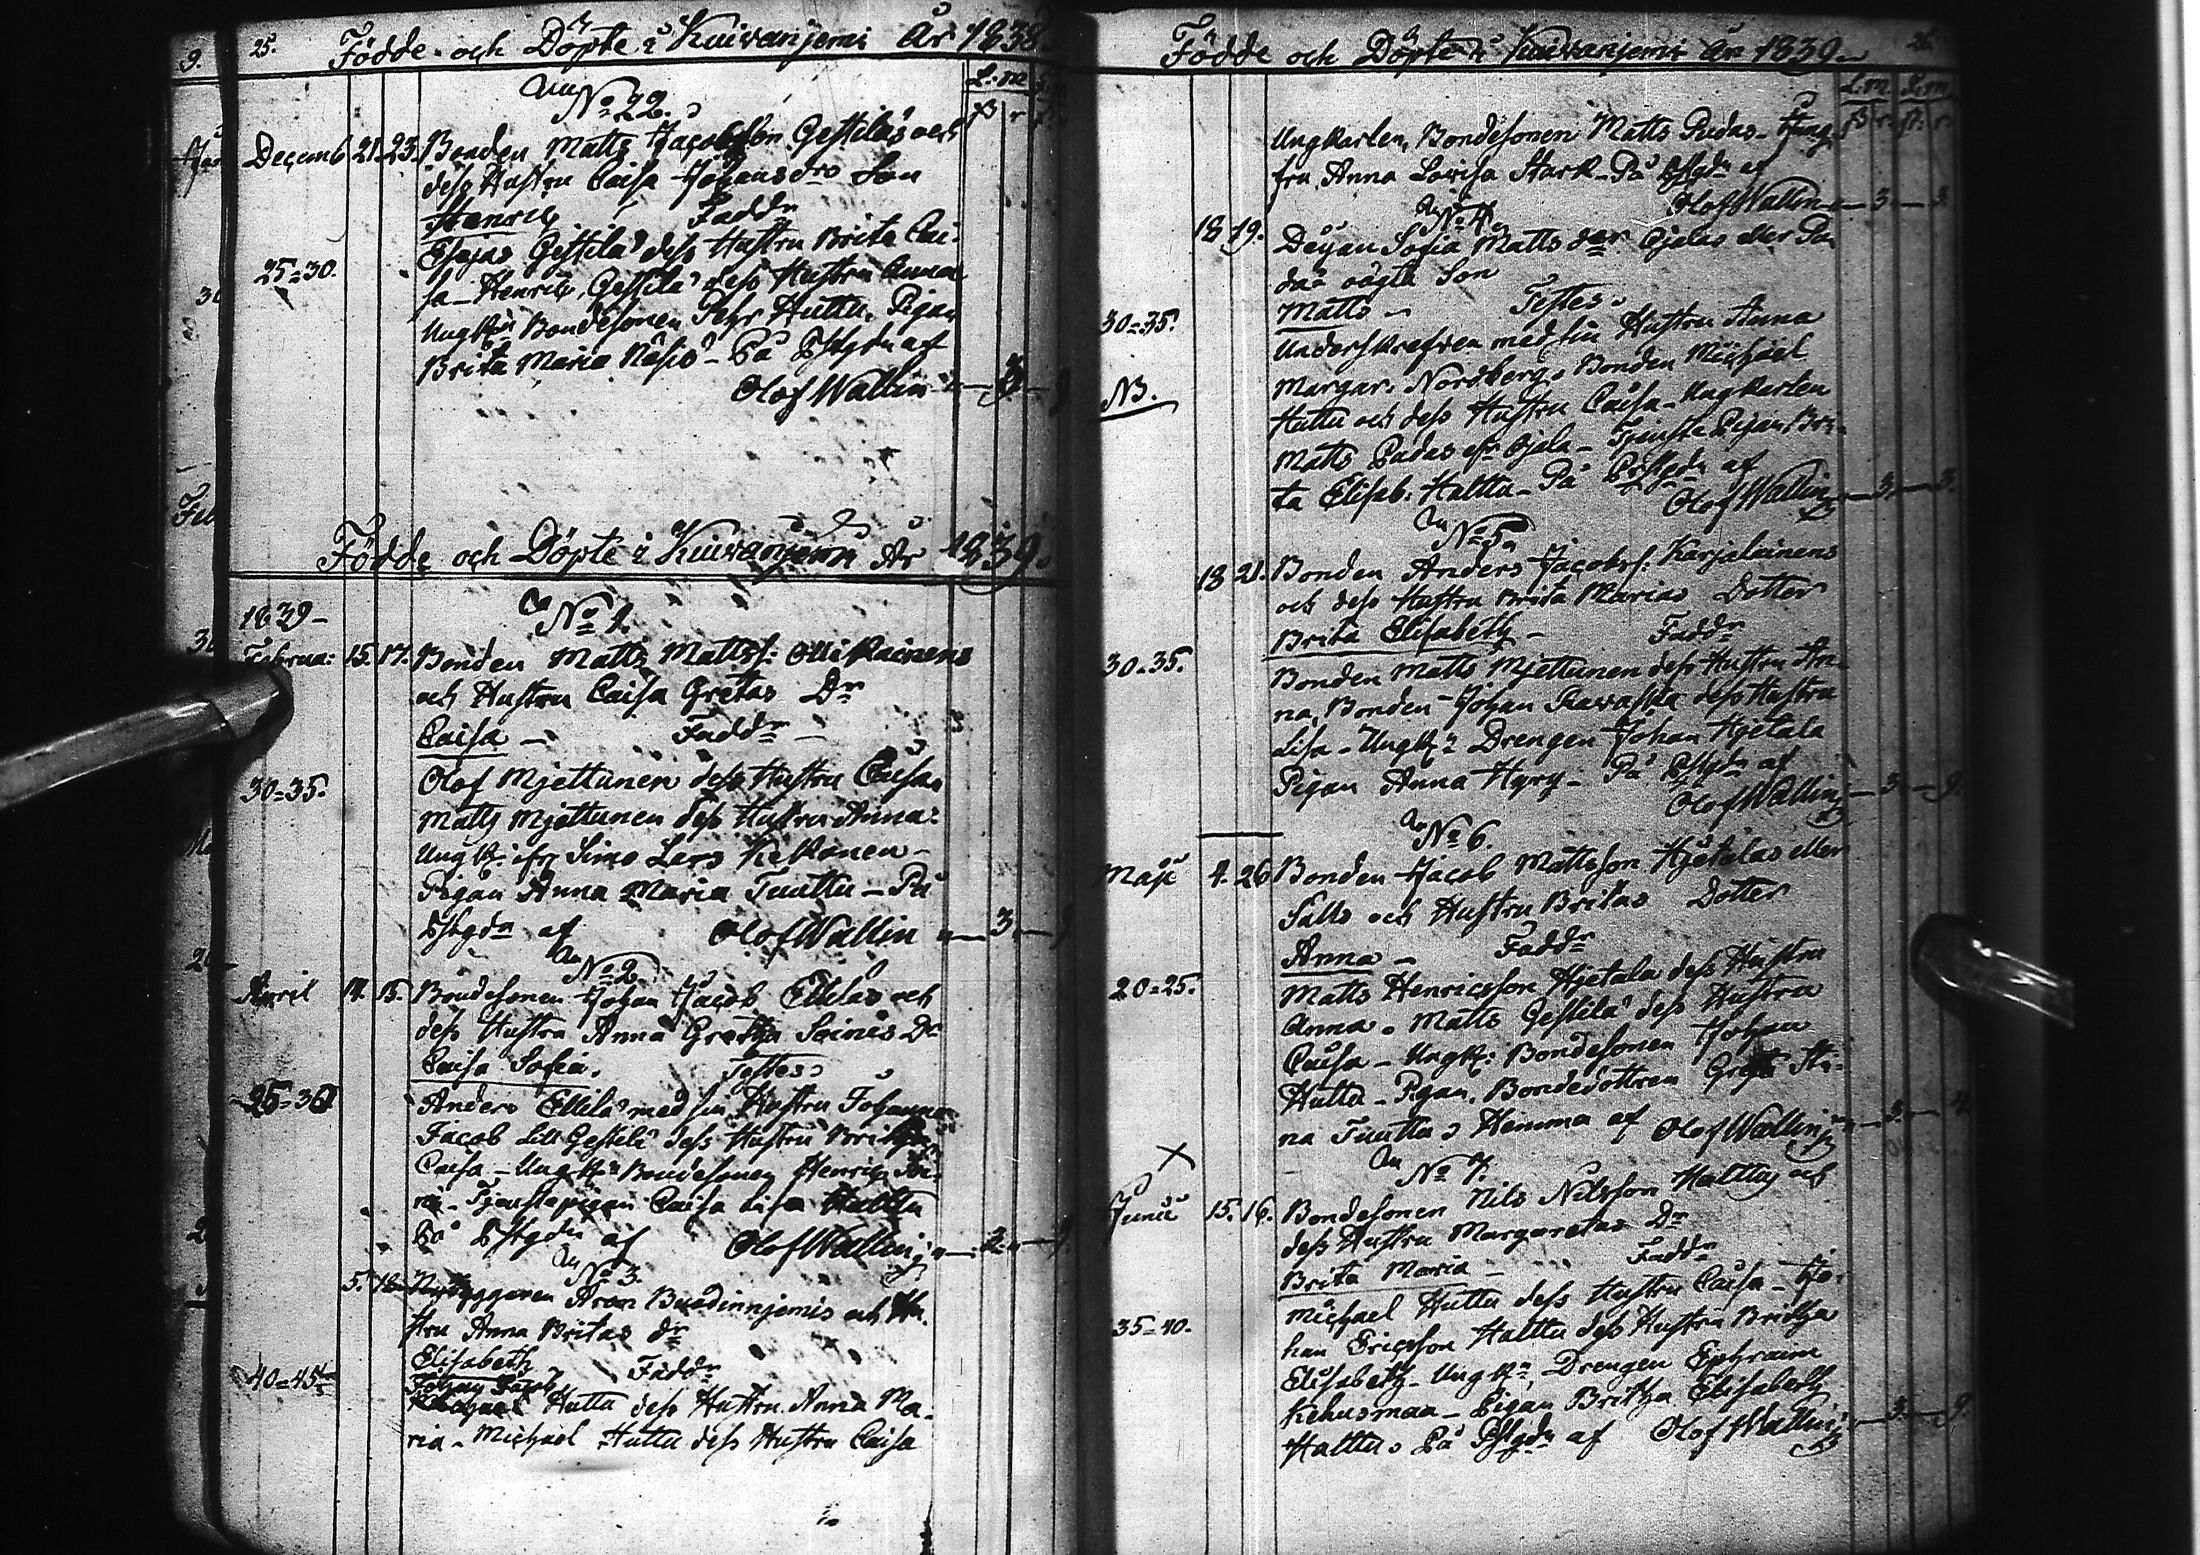 25. Födde och Döpte i Kuivaniemi År 1838.
L.m
No 22.
Decemb 21. 23. Bonden Matts Jacobsson Gestilas och
dess Hustru Caisa Johansdrs Son
Henric Faddr
Esajas Gestilä dess Hustru Brita Cai-
25=30.
sa - Henric Gestilä dess Hustru Anna
Ungk: Bondesonen Pehr Huttu, Pigan
Brita Maria Näsis - På Pstgdn af
Olof Wallin
Födde och Döpte i Kuivaniemi År 1839.
1839 -
No 1.
Februa: 15. 17. Bonden Matts Mattss: Ollikainens
och Hustru Caisa Gretas Dr
Caisa - Faddr -
30=35.
Olof Mjettunen dess Hustru Caisa
Matts Mjettunen dess Hustru Anna:
Ungk: ifr Simo Lars Kekonen -
Pigan Anna Maria Tuuttu - På
Pstgdn af Olof Wallin - 3. -
No 2.
April 14. 15. Bondesonen Johan Jacob Ellilas och
dess Hustru Anna Gretha Sainis Dr
Caisa Sofia. Testes:
25=30
Anders Ellilä med sin Hustru Johanna
Jacob Lill Gestilä dess Hustru Britha
Caisa - Ungk: Bondesonen Henric
Tjenstepigan Caisa Lisa Halttu
På Pstgdn af Olof Wallin; - 3. -
No 3.
5. 18. Nybyggaren Aron Buodinnjemis och Hu-
stru Anna Britas dr
Elisabeth Faddr
40=45
Johan Jacob
Huttu dess Hustru Anna Ma-
ria - Michael Huttu dess Hustru Caisa
Födde och Döpte i Kuivaniemi År 1839 -
26.
L.m. S.m.
Ungkarlen, Bondesonen Matts Pudas - Jung-
fru Anna Lovisa Stark - På Pstgdn af
Olof Wallin - 3. - 3
No 4.
18 19. Deijan Sofia Matts dor Ojalas eller Pu
das oägta Son
Matts - Testes.
30=35.
Underskrefven med sin Hustru Anna
Margar: Nordberg. Bonden Michael
NB.
Huttu och dess Hustru Caisa - Ungkarlen
Matts Pudas ifr Ojala - Tjenste Pigan Bri-
ta Elisab: Halttu - På Pstgdn af
Olof Wallin - 3. - 3.
No 5.
18 21. Bonden Anders Jacobs: Karjalainens
och dess Hustru Brita Marias Dotter
Brita Elisabeth - Faddr
30=35.
Bonden Matts Mjettunen dess Hustru An-
na, Bonden Johan Ravaska dess Hustru
Lisa - Ungk: Drengen Johan Hjetala
Pigan Anna Hyry - På Pstgdn af
Olof Wallin; - 3 - 9.
No 6.
Maji 4. 26 Bonden Jacob Mattsson Hjetalas eller
Salls och Hustru Britas Dotter
Anna - Faddr
20=25.
Matts Henricsson Hjetala dess Hustru
Anna. Matts Gestilä dess Hustru
Caisa - Ungk: Bondesonen Johan
Huttu - Pigan, Bondedottren Greta
na Tuuttu. Hemma af Olof Wallin; - 3. - 4
X
No 7.
Junii 15. 16. Bondesonen Nils Nilsson Halttus och
dess Hustru Margaretas Dr
Brita Maria - Faddr
35=40.
Michael Huttu dess Hustru Caisa - Jo-
han Ericsson Halttu dess Hustru Britha
Elisabeth - Ungk: Drengen Ephraim
Kehusmaa - Pigan Britha Elisabeth
Halttu. På Pstgdn af Olof Wallin; - 3. - 9.